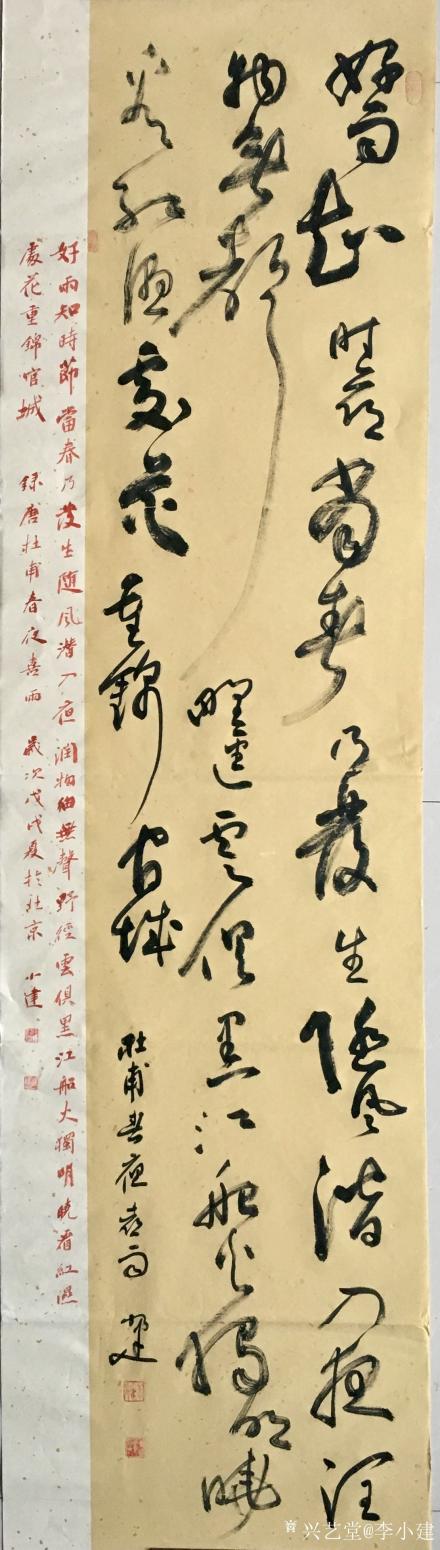 好雨知時節當春乃發生隨風潛入夜潤
物無聲野徑雲俱黑江船火獨明曉
看紅濕處花重錦官城 杜甫春夜喜雨 小建
好雨知時節當春乃發生随風潛入夜潤物細無聲野經雲俱黑江船火獨明曉看紅濕
處花重錦官城 録唐杜甫春夜喜雨 歲次戊戌夏於北京 小建
兴艺堂@李小建